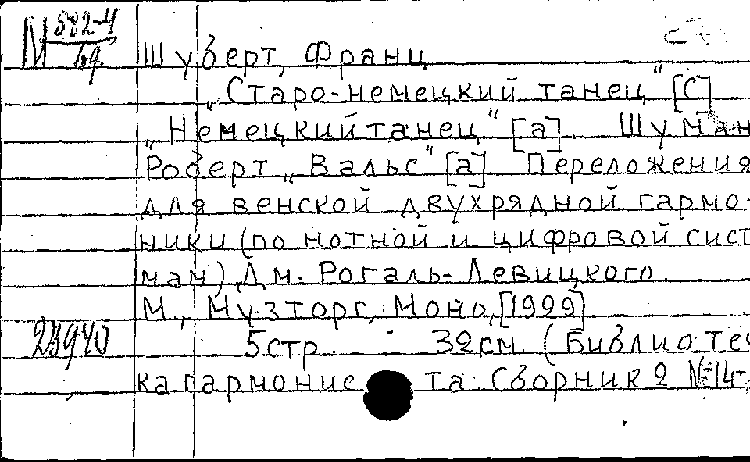 М 582-4
69
Шуберт, Франц
„Старо-немецкий танец“ [С]
„Немецкий танец“ [а] Шуман
Роберт „Вальс“ [а] Переложения
для венской двухрядной гармо-
ники (по нотной и цифровой сист
мам) Дм. Рогаль-Левицкого
М., Музторг, Моно, [1929]
23940 5 стр 32 см (Библиотеч
ка гармониста Сборник 2 №14-